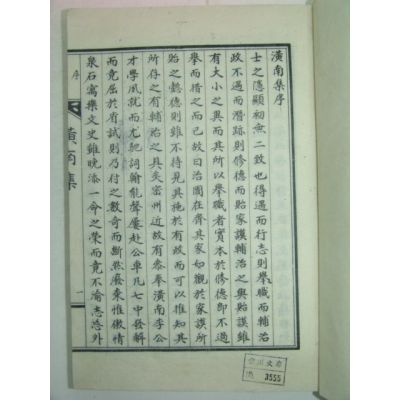 潢南集序
士之隱顯初無二致也得遇而行志則擧職而輔治
政不遇而潛跡則修德而貽家謨輔治之與貽謨雖
有大小之異而其所以擧職者實本於修德卽不過
擧而措之而已故曰治國在齊其家如觀於家謨所
貽之懿德則雖不待見其施於有政而可以推知其
所存之有輔治之具矣密州近故有泰拳潢南李公
才學夙就而尤耙詞翰能聲屢赴公車凡七中發解
而竟屈於有試則乃付之數奇而斷然廢棄惟儌情
泉石寓樂文史雖晩添一命之榮而竟不渝志
序
潢南集
一
3555